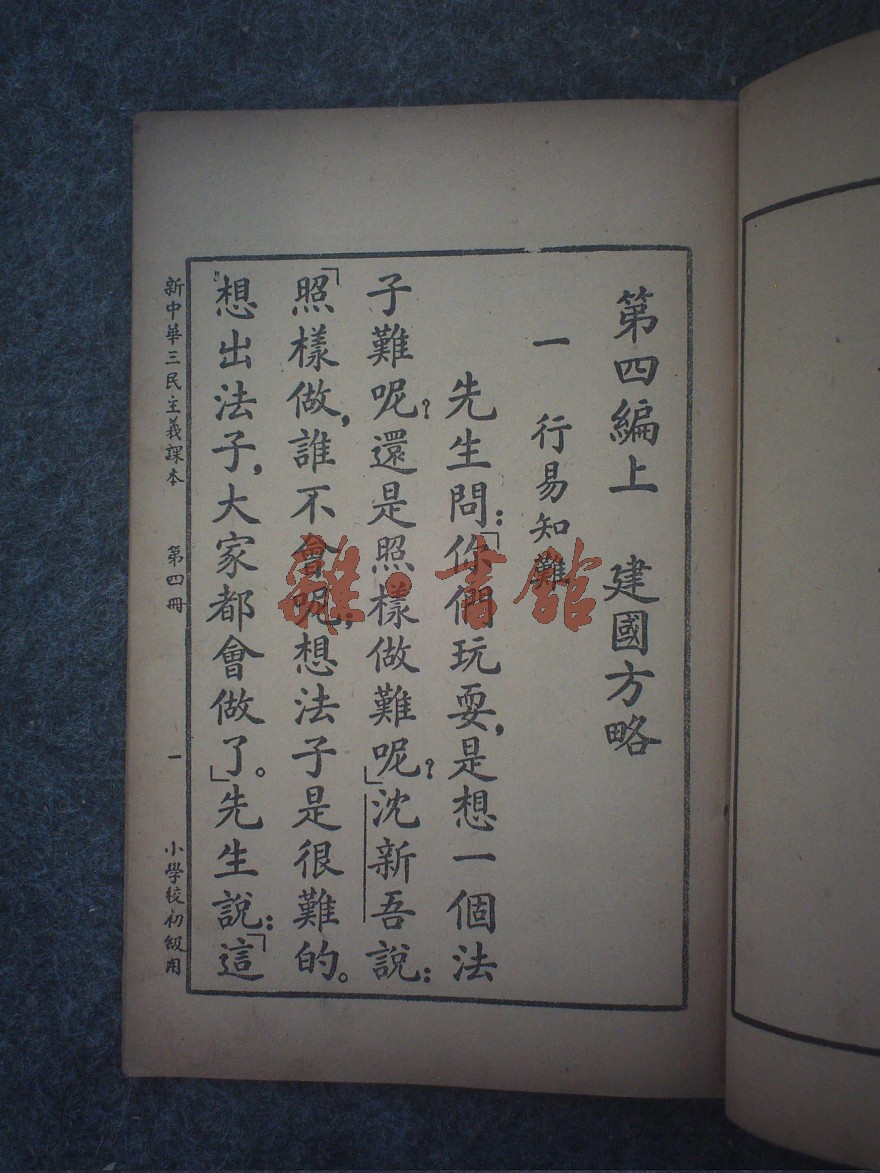 第四編上　建國方略
一　行易知難
先生問:「你們玩耍,是想一個法
子難呢?還是照樣做難呢?」沈新吾說:
「照樣做,誰不會呢;想法子是很難的。
想出法子,大家都會做了。」先生說:「這
新中華三民主義課本　第四冊　一　小學校初級用
雜·書館